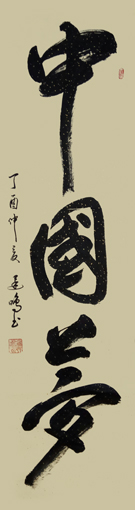 中國夢
丁酉仲夏建鳴書